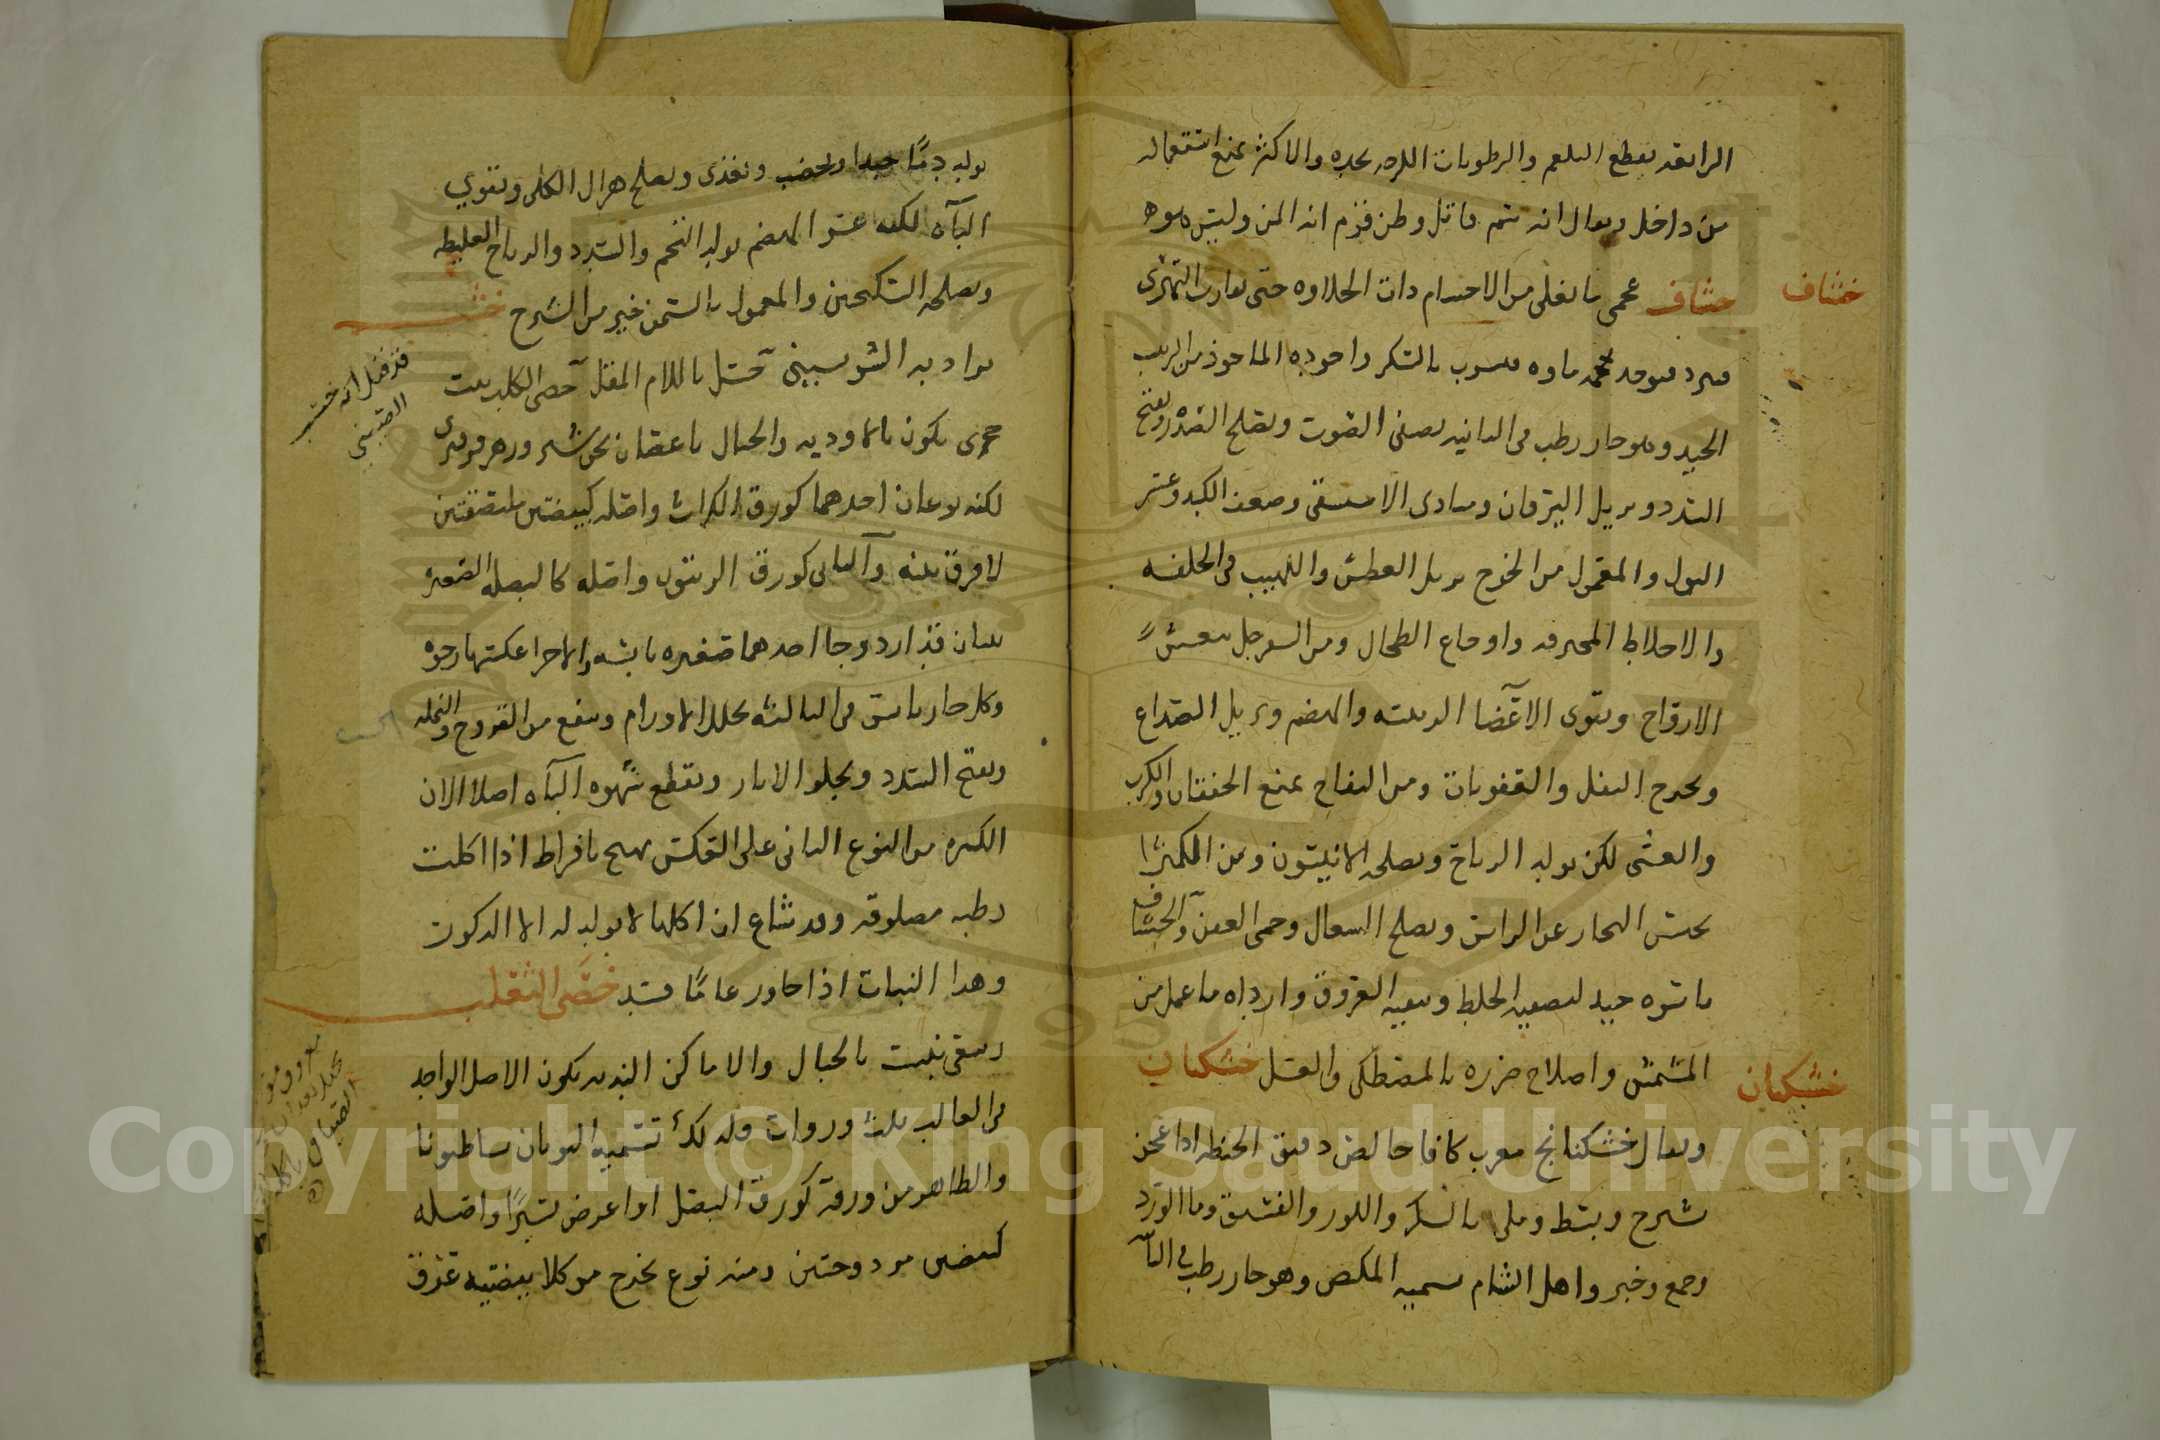 الرايقه يقطع البلغم والرطوبات اللزجه بحده والاكثر يمنع استعماله
من داخل ويقال انه سم قاتل وظن قوم انه المن وليس هوه
خشاف
خشاف عجمى ما يغلى من الاجسام ذات الحلاوه حتى يقارب التهرى
فيبرد فيوخذ ماوه فيشرب بالسكر واجوده الماخوذ من الزبيب
الجيد وهو حار رطب فى الثانيه يصفى الصوت ويصلح الصدر ويفتح
السدد ويزيل اليرقان ومبادى الاستسقى وضعف الكبد وعسر
البول والمعمول من الخوخ يزيل العطش واللهيب فى الخلفه
والاخلاط المحترقه واوجاع الطحال ومن السفرجل ينعش
الارواح ويقوى الاعضا الرييسه والهضم ويزيل الصداع
ويخرج الثفل والعفونات ومن التفاح يمنع الخفقان والكرب
والغشى لكن يولد الرياح ويصلحه الانيسون ومن الكمثرا
يحبس البخار عن الراس ويصلح السعال وحمى العفن والخشاف
باسره جيد لتصفيه الخلط وتنقيه العروق واردااه ما عمل من
المشمش واصلاح ضرره بالمصطكى والعسل خشكنان
خشكنان
ويقال خشكنانج معرب كافا خالص دقيق الحنطه اذا عجن
بشيرج وبسط وملى بالسكر واللوز والفستق وما الورد
وجمع وخبز واهل الشام تسميه المكفن وهو حار رطب فى الثا
يولد دما جيدا ويخصب ويغذى ويصلح هزال الكلى ويقوي
الباه لكنه عسر الهضم يولد التخم والسدد والرياح الغليظه
ويصلحه السكنجبين والمعمول بالسمن خير من الشيرج خشب
يراد به الشوبشينى خسل باللام المقل خصى الكلب نبت
قد قيل انه خشب
الصينى
حجرى يكون بالاوديه والجبال باغصان نحو شبر وزهر فرفيرى
لكنه نوعان احدهما كورق الكراث واصله كبيضتين ملتصقتين
لا فرق بينه والثانى كورق الزيتون واصله كالبصله الصغير
بيضان قد ازدوجا احدهما صغيره يابسه والاخرا عكسها رخوه
وكل حار يابس فى الثالثه يحلل الاورام وينفع من القروح والنمله
ويفتح السدد ويجلو الاثار ويقطع شهوه الباه اصلا الا ان
الكبيره من النوع الثانى على العكس يهيج بافراط اذا اكلت
رطبه مصلوقه وقد شاع ان اكلها لا يولد له الا الذكور
وهذا النبات اذا جاوز عاما فسد خصى الثعلب
ربيعى ينبت بالجبال والاماكن النديه يكون الاصل الواحد
فى الغالب ثلث ورقات ولذلك تسميه اليونان ساطيونا
والظاهر من ورقه كورق البصل او اعرض يسيرا واصله
كبيضتين مزدوجتين ومنه نوع يخرج من كلا بيضتيه عرق
Copyright © King Saud University